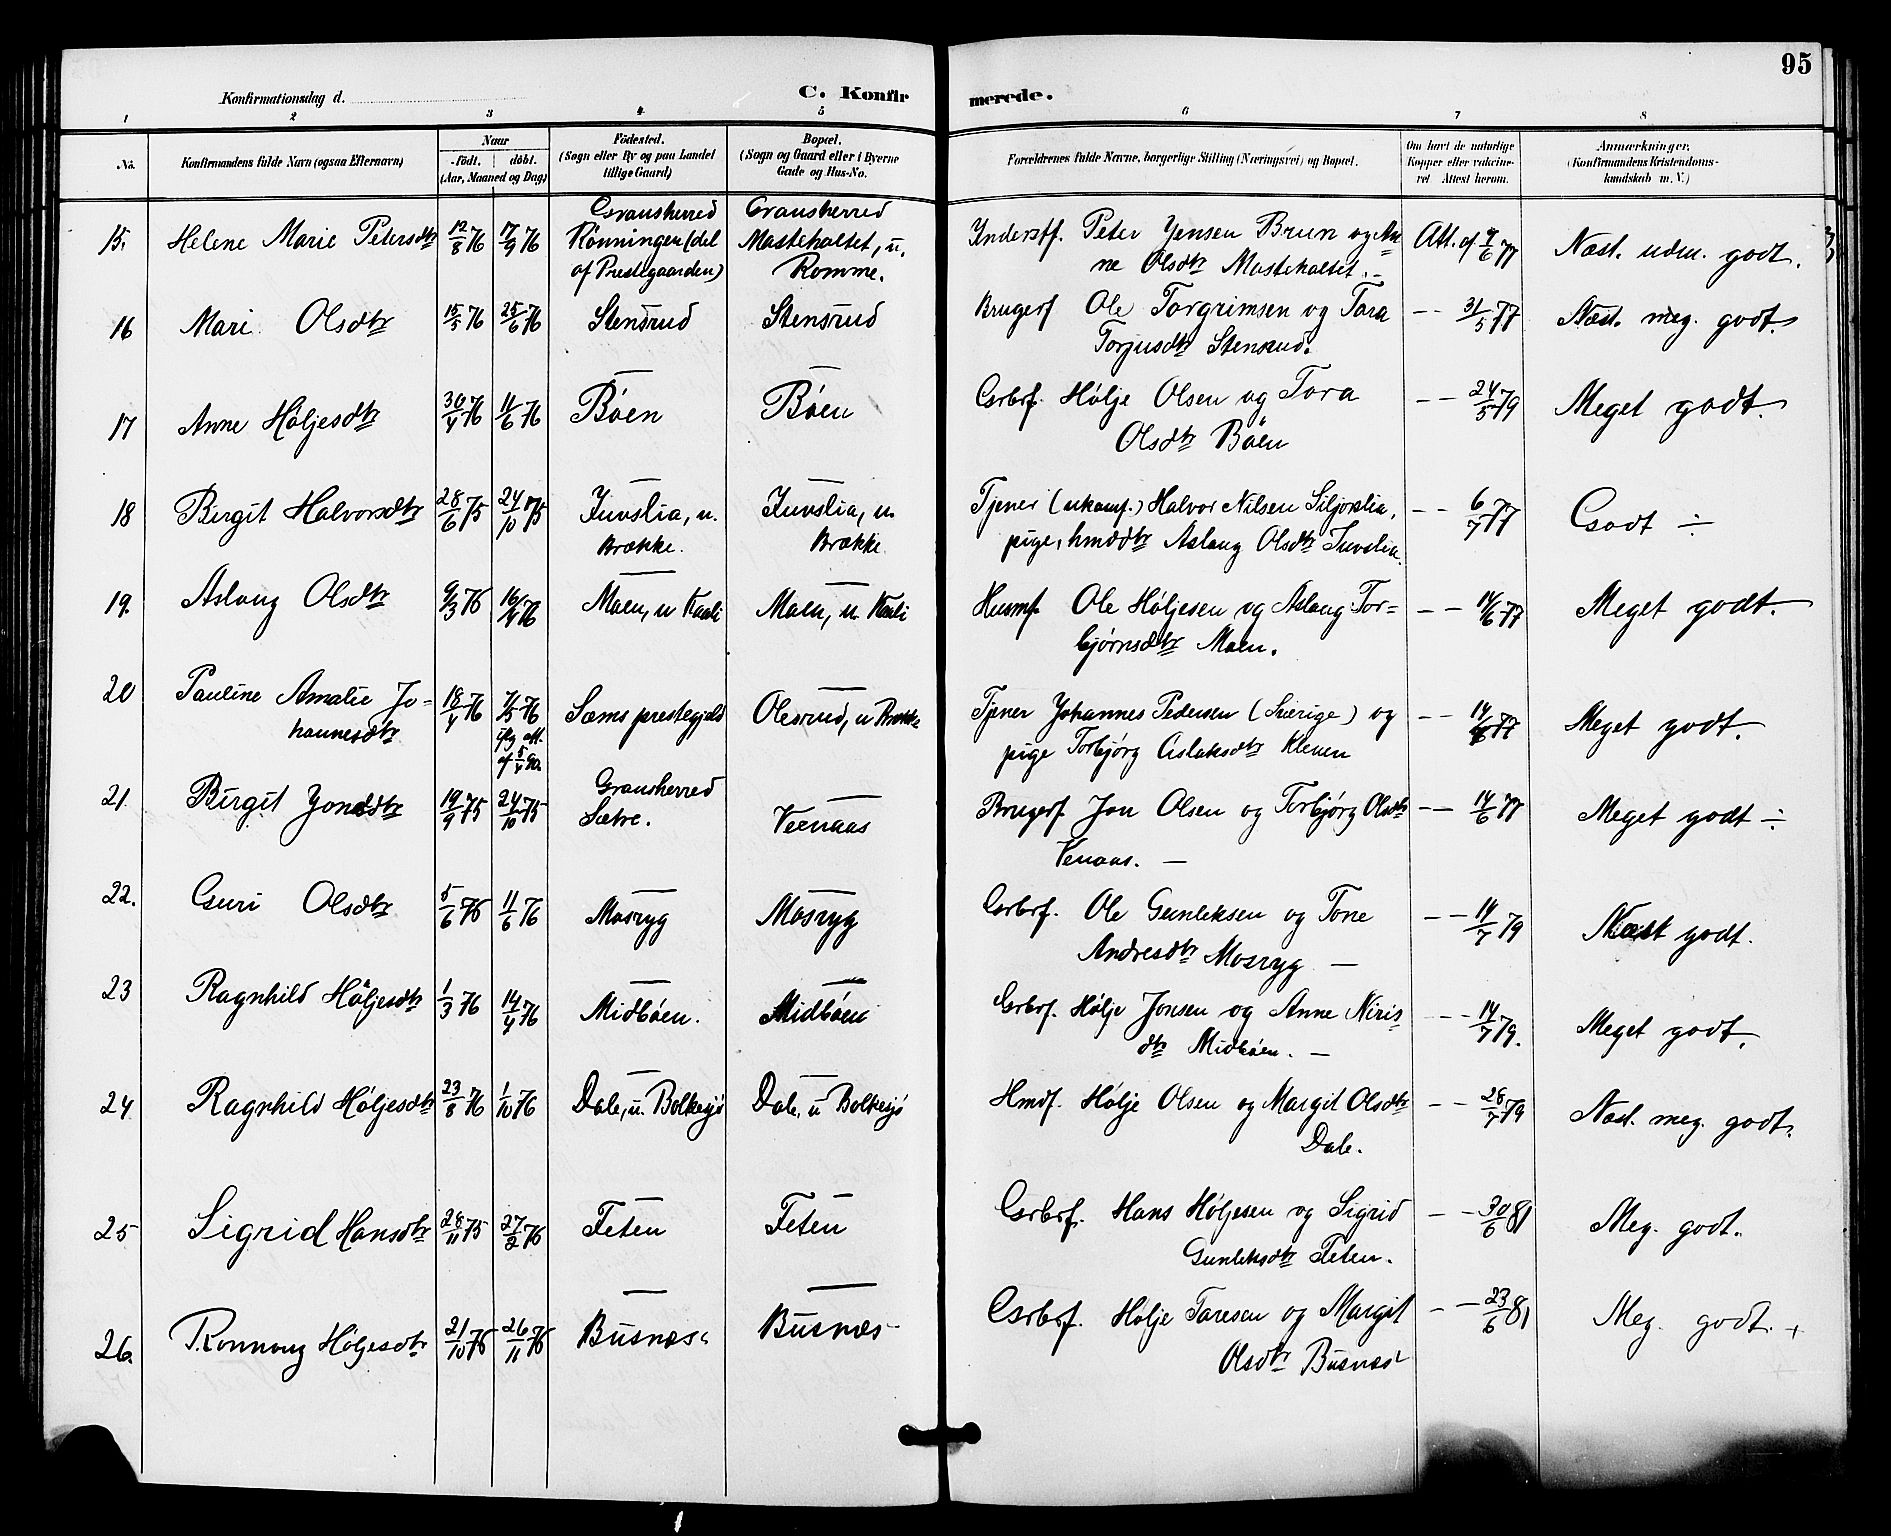 95
Konfirmationsdag d.
C. Konfirmerede.
1 2 3 4 5 6 7 8
No.
Konfirmandens fulde Navn (ogsaa Efternavn)
Naar
født. døbt.
(Aar, Maaned og Dag)
Fødested.
(Sogn eller By og paa Landet
tillige Gaard)
Bopæl.
(Sogn og Gaard eller i Byerne
Gade og Hus-No.
Forældrenes fulde Navne, borgerlige Stilling (Næringsvei) og Bopæl.
Om havt de naturlige
Kopper eller vaccine-
ret Attest herom.
Anmærkninger.
(Konfirmandens Kristendoms-
kundskab m. V.)
15. Helene Marie Petersdtr 12/8 76 17/9 76 Gransherred Rønningen (del af Prestegaarden) Gransherred Masteholtet, u. Romme. Inderstf. Peter Jensen Brun og Anne Olsdtr Masteholtet. Att. af 7/6 77 Næst. udm. godt.
16 Mari Olsdtr 15/5 76 25/6 76 Stensrud Stensrud Brugerf Ole Torgrimsen og Tora Torjusdtr Stensrud. — — 31/5 77 Næst. meg. godt.
17 Anne Høljesdtr 30/4 76 11/6 76 — Bøen — Bøen Gsrbrf. Hølje Olsen og Tora Olsdtr Bøen — — 24/5 79 Meget godt.
18 Birgit Halvorsdtr 28/6 75 24/10 75 — Juvslia, u. Brække. — Juvslia, u. Brække Tjener (ukonf.) Halvor Nilsen Siljorslia, pige, hmddtr Aslaug Olsdtr Juvslia. — — 6/7 77 Godt ÷
19. Aslaug Olsdtr 9/3 76 16/4 76 — Moen, u Kaali — Moen, u. Kaali Husmf. Ole Høljesen og Aslaug Torbjørnsdtr Moen. — — 14/6 77 Meget godt.
20 Pauline Amalie Johannesdtr 18/4 76 7/5 76 ifg att. af 5/4 90. Sems prestegjeld — Olesrud, u Brække Tjener Johannes Pedersen (Sverige) og pige Torbjørg Aslaksdtr Kleven — — 14/6 77 Meget godt.
21. Birgit Jonsdtr 19/9 75 24/10 75 Gransherred Sætre. — Veenaas Brugerf Jon Olsen og Torbjørg Olsdtr Venaas. — — — 14/6 77 Meget godt ÷
22. Guri Olsdtr 5/6 75 11/6 76 — Mosryg — Mosryg Gsrbrf. Ole Gunleksen og Tone Andresdtr Mosryg — — — 14/7 79 Næst godt.
23 Ragnhild Høljesdtr 1/3 76 14/4 76 — Midbøen. — Midbøen Gsrbrf. Hølje Jonsen og Anne Nirisdtr Midbøen. — — — 14/7 79. Meget godt.
24 Ragnhild Høljesdtr 23/8 76 1/10 76 — Dale, u. Bolkesjø — Dale, u Bolkesjø Hmdf. Hølje Olsen og Margit Olsdtr Dale. — — 28/7 79 Næst. meg. godt.
25 Sigrid Hansdtr 28/11 75 27/2 76 — Feten — Feten Gsrbrf. Hans Høljesen og Sigrid Gunleksdtr Feten. — — 30/6 81 Meg. godt.
26. Rønnaug Høljesdtr 21/10 76 26/11 76 — Busnæs — Busnæs Gsrbrf. Hølje Taresen og Margit Olsdtr Busnæs — — 23/6 81 Meg. godt. +